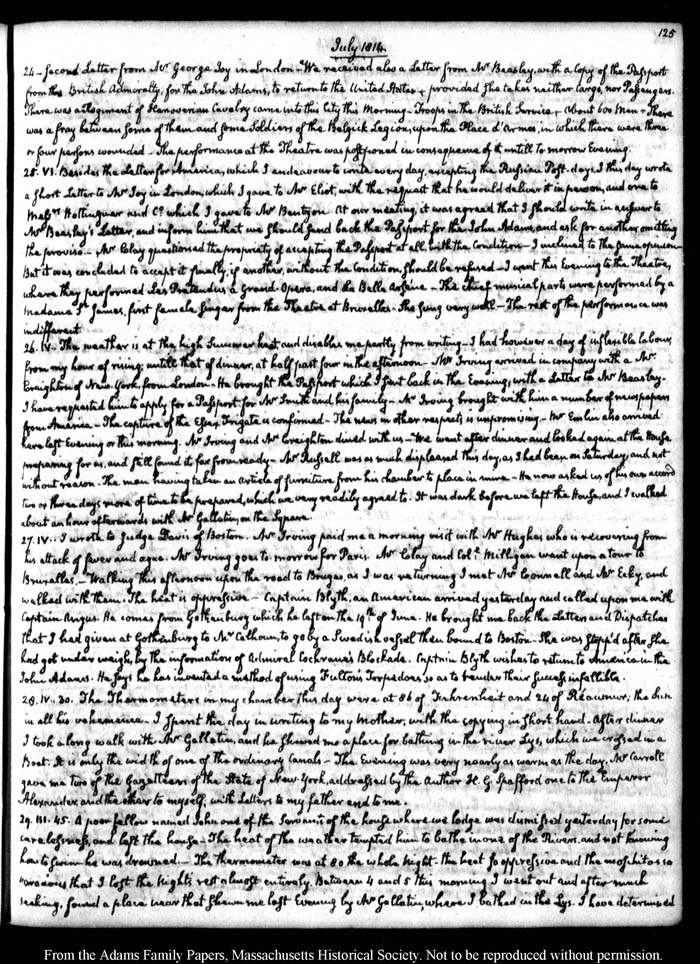 125
July 1814.
24 – Second Letter from Mr George Joy in London – We received also a Letter from Mr Beasley, with a copy of the Passport
from the British Admiralty, for the John Adams, to return to the United States, provided she takes neither Cargo, nor Passengers.
There was a Regiment of Hanoverian Cavalry came into this City this Morning – Troops in the British Service, about 600 Men – There
was a fray between some of them and some Soldiers of the Belgick Legion, upon the Place d'Armes, in which there were three
or four persons wounded – The performance at the Theatre was postponed in consequence of it untill to morrow Evening.
25. VI. Besides the Letter for America, which I endeavour to write every day, excepting the Russian Post-days, I this day wrote
a short Letter to Mr Joy in London, which I gave to Mr Eliot, with the request that he would deliver it in person, and one to
Messrs Hottinguer and Co. which I gave to Mr Bentzon. At our meeting, it was agreed that I should write in answer to
Mr Beasley's Letter, and inform him that we should send back the Passport for the John Adams, and ask for another omitting
the proviso – Mr Clay questioned the propriety of accepting the Passport at all, with the Condition – I inclined to the same opinion
But it was concluded to accept it finally, if another, without the Condition, should be refused – I went this Evening to the Theatre,
where they performed Les Pretendus a Grand Opera, and la Belle Arsène – The chief musical parts were performed by a
Madame St James, first female Singer from the Theatre at Bruxelles – She sung very well – The rest of the performance was
indifferent
26. IV. The weather is at the high Summer heat and disables me partly from writing – I had however a day of inflexible labour,
from my hour of rising, untill that of dinner, at half past four in the afternoon – Mr Irving arrived in company with a Mr
Creighton of New-York, from London – He brought the Passport which I sent back in the Evening, with a Letter to Mr Beasley –
I have requested him to apply for a Passport for Mr Smith and his family – Mr Irving brought with him a number of newspapers
from America – The capture of the Essex Frigate is confirmed – The news in other respects is unpromising – Mr Emlin also arrived
here last Evening or this morning. Mr Irving and Mr Creighton dined with us – We went after dinner and looked again at the House
preparing for us, and still found it far from ready – Mr Russell was as much displeased this day, as I had been on Saturday, and not
without reason – The man having taken an article of furniture from his chamber to place in mine – He now asked us of his own accord
two or three days more of time to be prepared, which we very readily agreed to. It was dark before we left the House, and I walked
about an hour afterwards with Mr Gallatin, on the Square
27. IV. I wrote to Judge Davis of Boston. Mr Irving paid me a morning visit with Mr Hughes who is recovering from
his attack of fever and ague. Mr Irving goes to morrow for Paris. Mr Clay and Coll. Milligan went upon a tour to
Bruxelles. – Walking this afternoon upon the road to Bruges, as I was returning I met Mr Connell and Mr Ecky, and
walked with them. The heat is oppressive – Captain Blyth, an American arrived yesterday and called upon me with
Captain Angus. He comes from Gothenburg which he left on the 19th of June. He brought me back the Letters and Dispatches
that I had given at Gothenburg to Mr Calhoun, to go by a Swedish vessel then bound to Boston. She was stopp'd after she
had got under weigh, by the information of Admiral Cochrane's Blockade. Captain Blyth wishes to return to America in the
John Adams. He says he has invented a method of using Fulton's Torpedoes so as to render their success infallible.
28. IV. 30. The Thermometers in my chamber this day were at 86 of Fahrenheit and 24 of Réaumur, the
in all his vehemence – I spent the day in writing to my Mother, with the copying in short hand. After dinner
I took a long walk with Mr Gallatin, and he shewed me a place for bathing in the river Lys, which we crossed in a
Boat. It is only the width of one of the ordinary Canals – The Evening was very nearly as warm as the day. Mr Carroll
gave me two of the Gazetteers of the State of New-York, addressed by the Author H. G. Spafford one to the Emperor
Alexander and the other to myself; with Letters to my father and to me.
29. III. 45. A poor fellow named John one of the Servants of the house where we lodge was dismissed yesterday for some
carelessness, and left the house – The heat of the weather tempted him to bathe in one of the Rivers, and not knowing
how to swim he was drowned. – The thermometer was at 80 the whole Night – the heat so oppressive and the moschitos so
voracious that I lost the Night's rest almost entirely. Between 4 and 5 this morning I went out and after much
seeking, found a place near that shewn me last Evening by Mr Gallatin, where I bathed in the Lys. I have determined
From the Adams Family Papers, Massachusetts Historical Society. Not to be reproduced without permission.